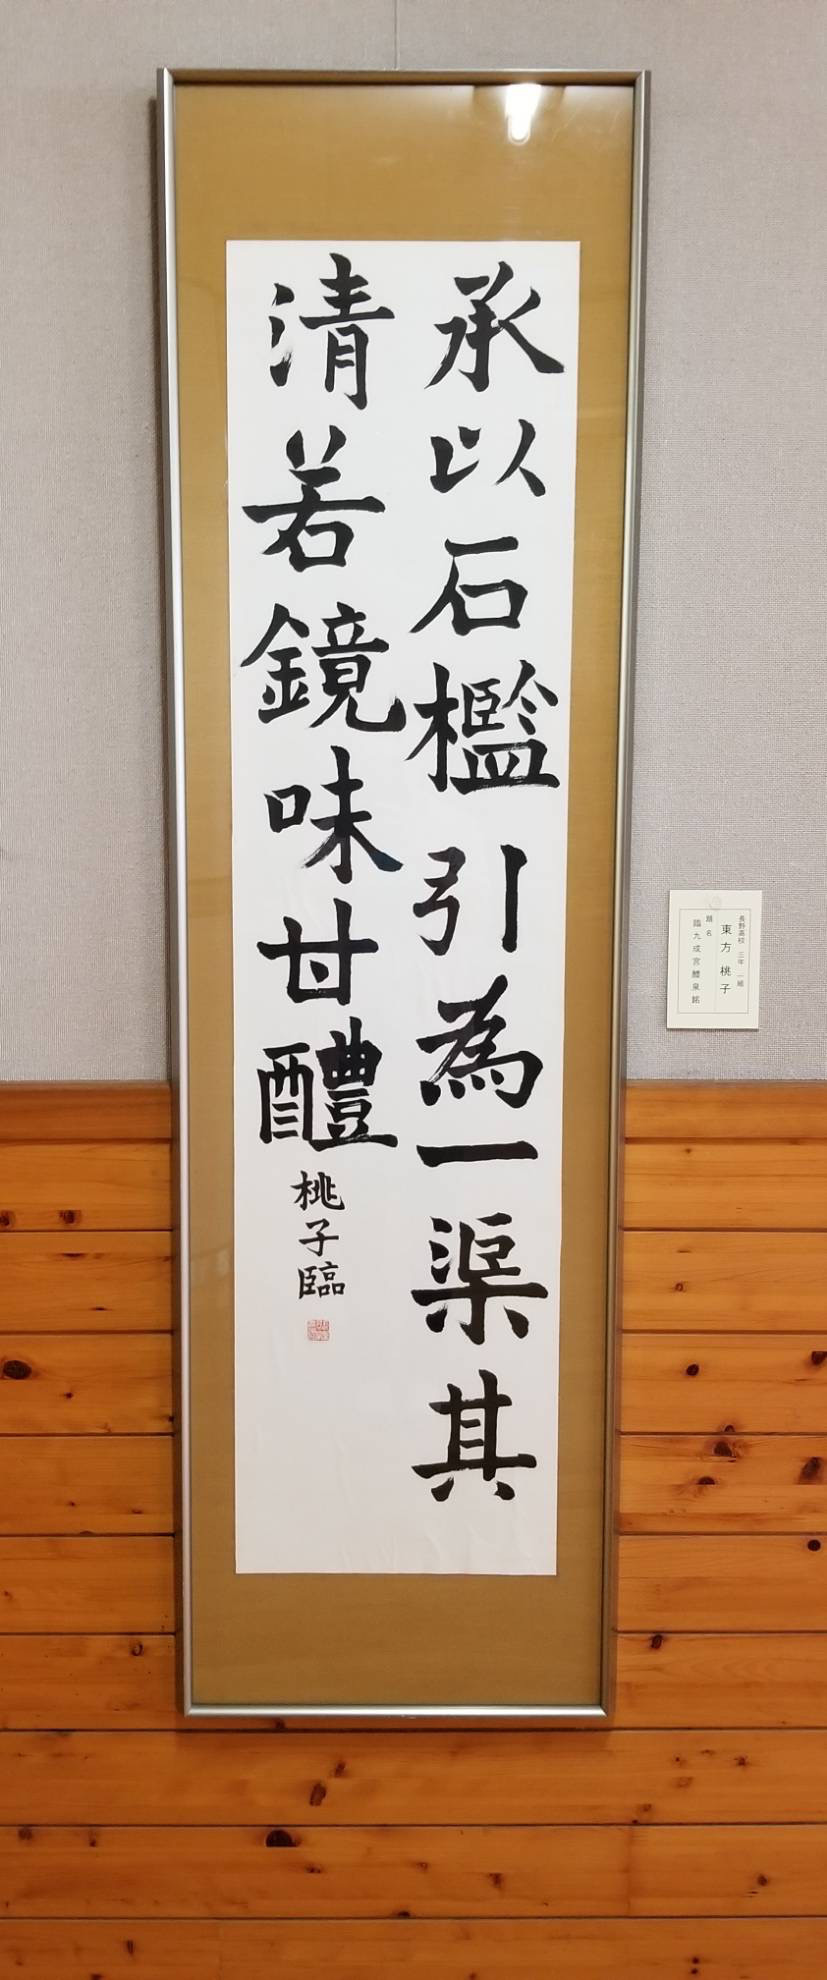 承以石檻引為一渠其
清若鏡味甘醴
桃子臨
長野高校 三年 一組
東方 桃子
題名
臨九成宮醴泉銘